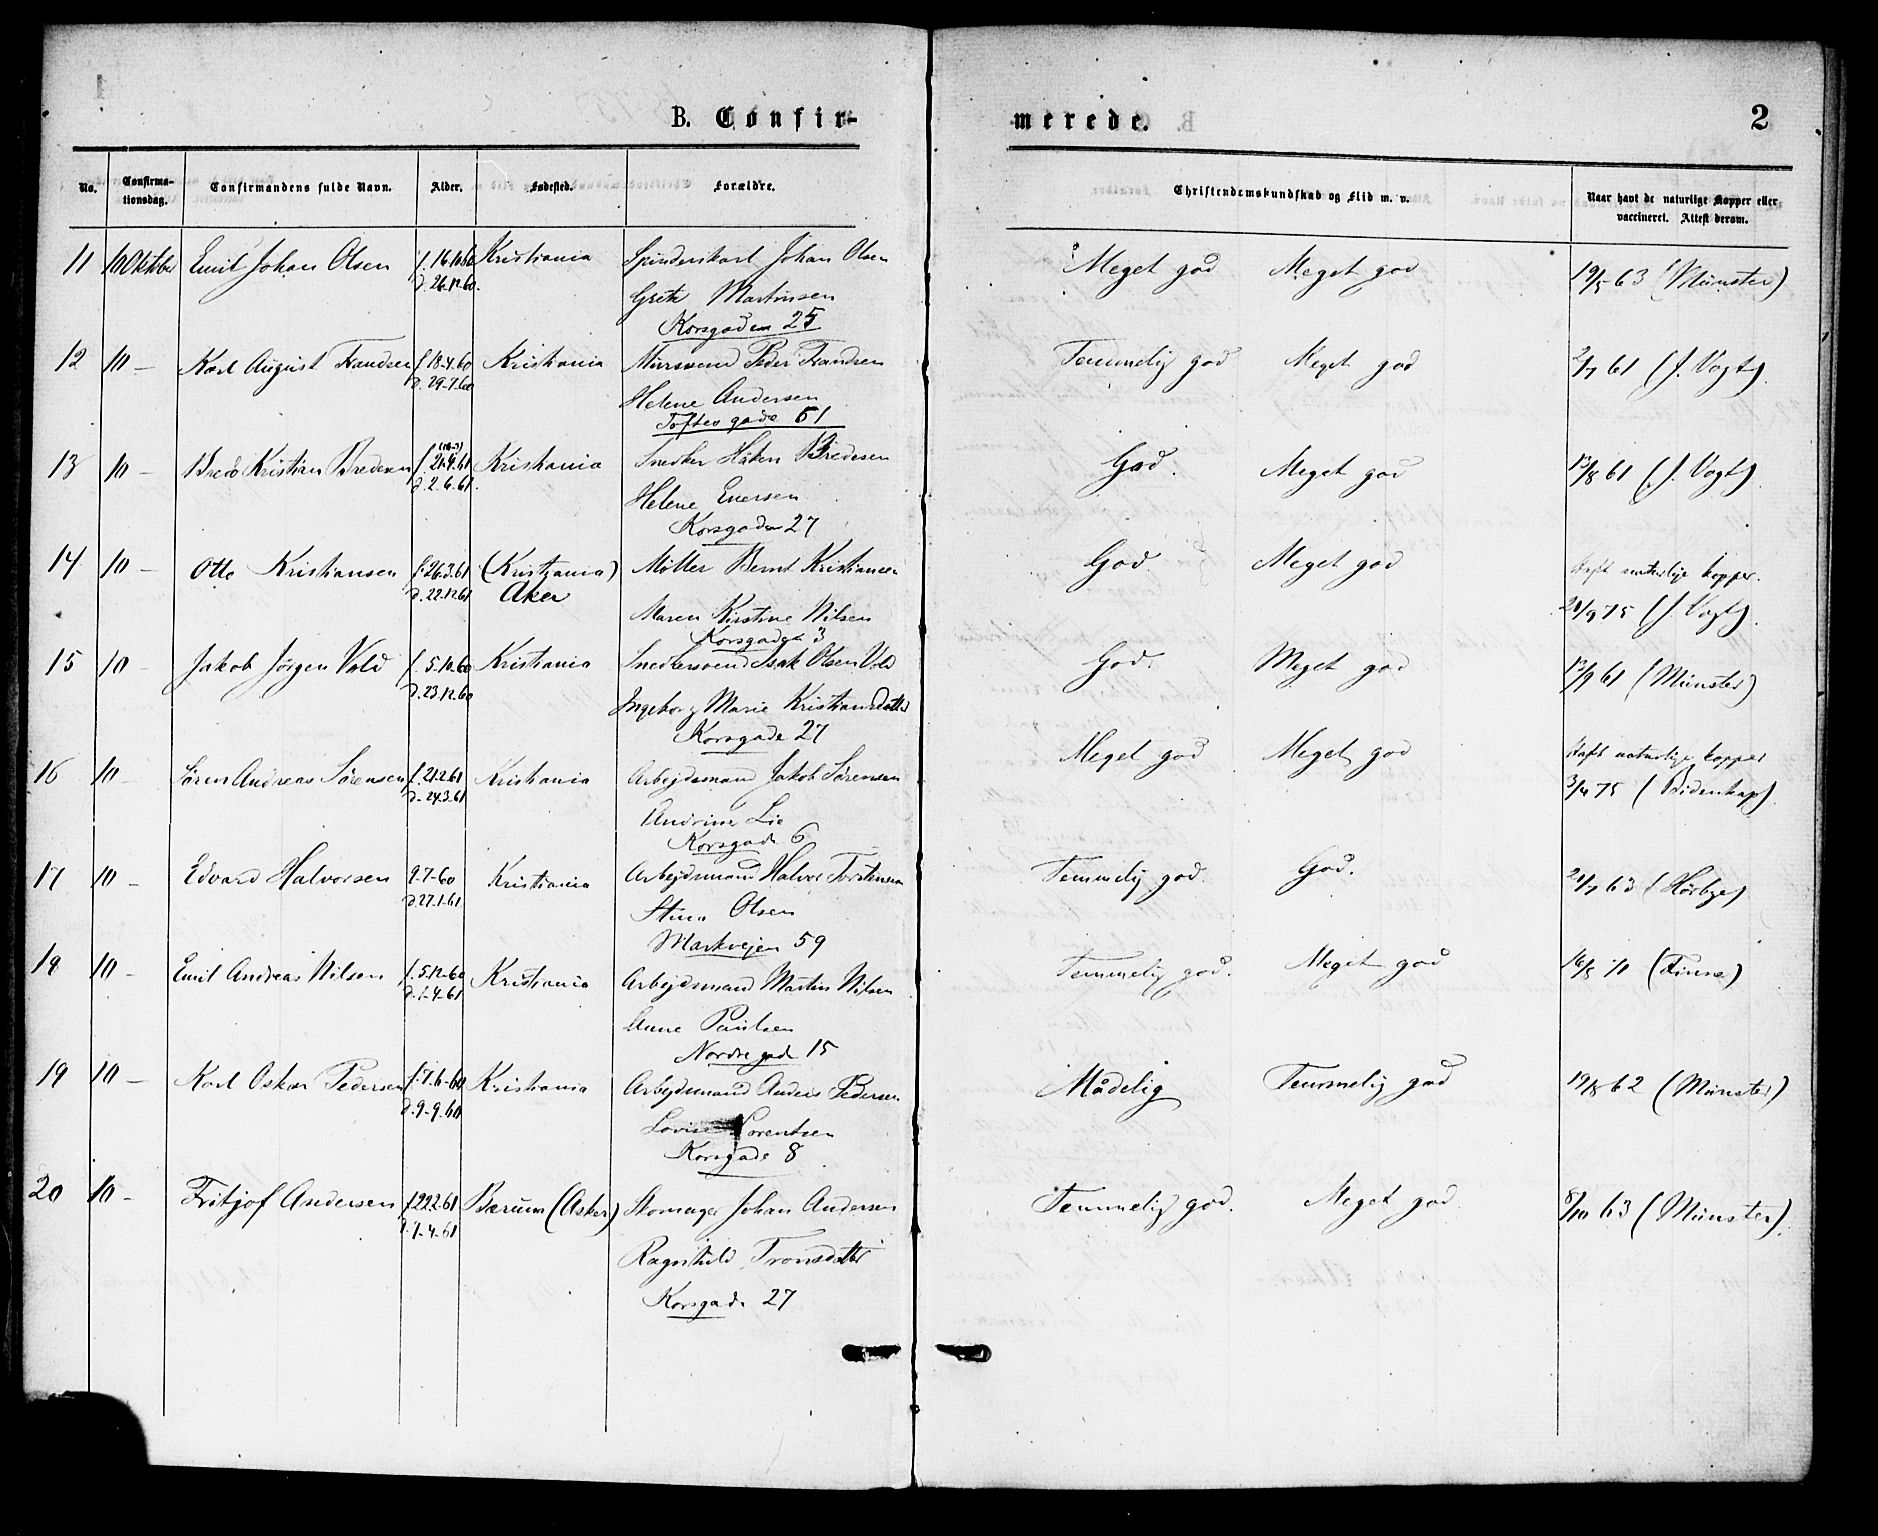 B. Confirmerede. 2
No. Confirmationsdag. Confirmandens fulde Navn. Alder. Fødested. Forældre. Christendomskundskab og Flid m. v. Naar havt de naturlige Kopper eller vaccineret. Attest derom.
11 10 Oktober Emil Johan Olsen f. 16.10.60 Kristiania Johan Olsen Meget god Meget god 19/5 63 (Münster)
d. 26.12.60. Grete Martinsen
Korsgaden 25
12 10 — Karl August Frandsen f. 18-4.60 Kristiania Murmand Peder Frandsen Temmelig god Meget god 2/7 61 (J. Vogt)
d. 29-7.60 Helene Andersen
Toftes gade 51
13 10 — Bredo Kristian Bredesen f. 21.4.61 Kristiania Snedker Håken Bredesen God. Meget god 13/8 61 (J. Vogt)
d. 2.6.61. Helene Eversen
Korsgaden 27
14 10 — Otto Kristiansen f. 26.3.61 (Kristiania) Møller Bernt Kristiansen God. Meget god Haft naturlige kopper.
d. 22.12.61 Aker Maren Kirstine Nilsen 21/9 75 (J. Vogt)
Korsgade 3
15 10 — Jakob Jörgen Vold f. 5.10.60 Kristiania Snedkersvend Isak Olsen Vold God. Meget god 13/9 61 (Münster)
d. 23.12.60 Ingeborg Marie Kristiansdatter
Korsgade 27
16 10 — Sören Andreas Sörensen f. 21.2.61 Kristiania Arbejdsmand Jakob Sörensen Meget god Meget god Haft naturlige kopper
d. 24.3.61 Andrine Lie 3/4 75 (Bidenkap)
Korsgade 6
17 10 — Edvard Halvorsen 9-7-60 Kristiania Arbejdsmand Halvor Torstensen Temmelig god. God. 21/7 63 (Hørbye)
d. 27.1.61 Stine Olsen
Markvejen 59
18 10 — Emil Andreas Nilsen f. 5.12-60 Kristiania Arbejdsmand Martin Nilsen Temmelig god. Meget god 16/8 70 (Finne)
d. 1-4.61 Anne Paulsen
Nordregade 15
19 10 — Karl Oskar Pedersen f. 7.6-60 Kristiania Arbejdsmand Anders Pedersen Mådelig Temmelig god 19/8 62 (Münster)
d. 9-9.60 Lovise Lorentsen
Korsgade 8
20 10 — Fritjof Andersen f. 22.2.61 Bærum (Asker) Skomager Johan Andersen Temmelig god. Meget god 8/10 63 (Münster).
d. 1-4-61 Ragnhild Tronsdatter
Korsgade 27